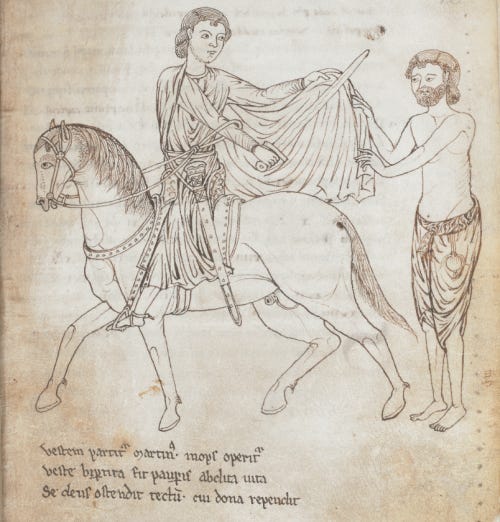 Vestem partit᷑ martin᷒· inops operit᷑
veste biꝑtita fit pauꝑis abolita uita
Se deus ostendit tectū· cui dona rependit